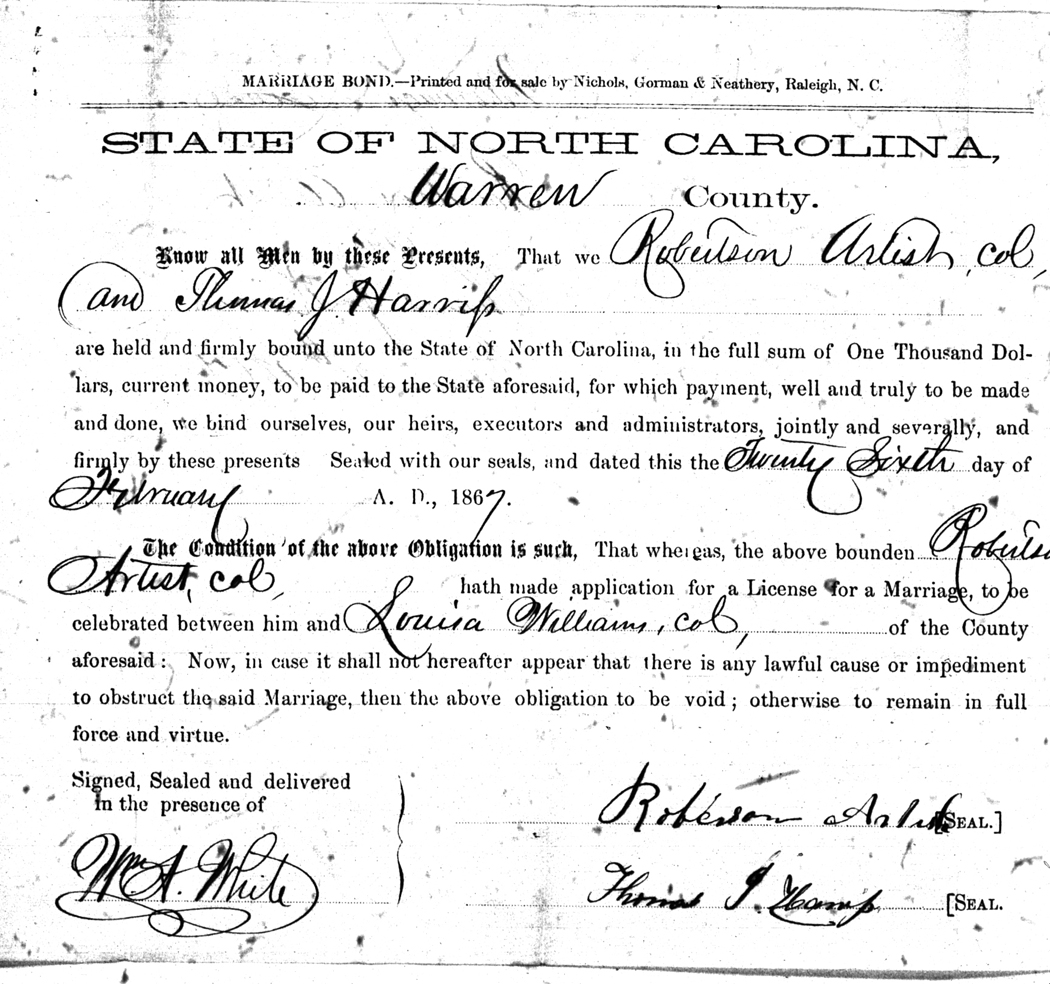 MARRIAGE BOND.—Printed and for sale by Nichols, Gorman & Neathery, Raleigh, N. C.
STATE OF NORTH CAROLINA,
Warren County.
Know all Men by these Presents, That we Robertson Artist, col,
and Thomas J. Harriss
are held and firmly bound unto the State of North Carolina, in the full sum of One Thousand Dol-
lars, current money, to be paid to the State aforesaid, for which payment, well and truly to be made
and done, we bind ourselves, our heirs, executors and administrators, jointly and severally, and
firmly by these presents Sealed with our seals, and dated this the Twenty Sixth day of
February A. D., 1867.
The Condition of the above Obligation is such, That whereas, the above bounden Robertso
Artist, col, hath made application for a License for a Marriage, to be
celebrated between him and Louisa Williams, col, of the County
aforesaid : Now, in case it shall not hereafter appear that there is any lawful cause or impediment
to obstruct the said Marriage, then the above obligation to be void ; otherwise to remain in full
force and virtue.
Signed, Sealed and delivered
in the presence of
Roberson Artist [SEAL.]
Wm A. White
Thomas J. Harriss [SEAL.